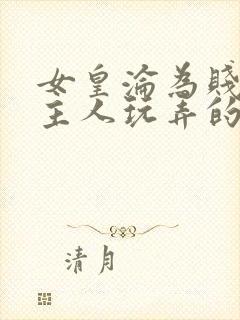 女皇淪為賤
主人玩弄的
清月